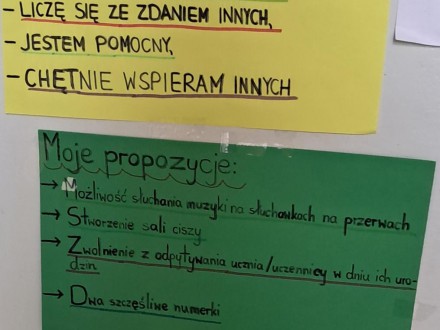 - LICZĘ SIĘ ZE ZDANIEM INNYCH,
- JESTEM POMOCNY,
- CHĘTNIE WSPIERAM INNYCH
Moje propozycje:
→ Możliwość słuchania muzyki na słuchawkach na przerwach
→ Stworzenie sali ciszy
→ Zwolnienie z odpytywania ucznia/uczennicy w dniu ich uro-
dzin
→ Dwa szczęśliwe numerki